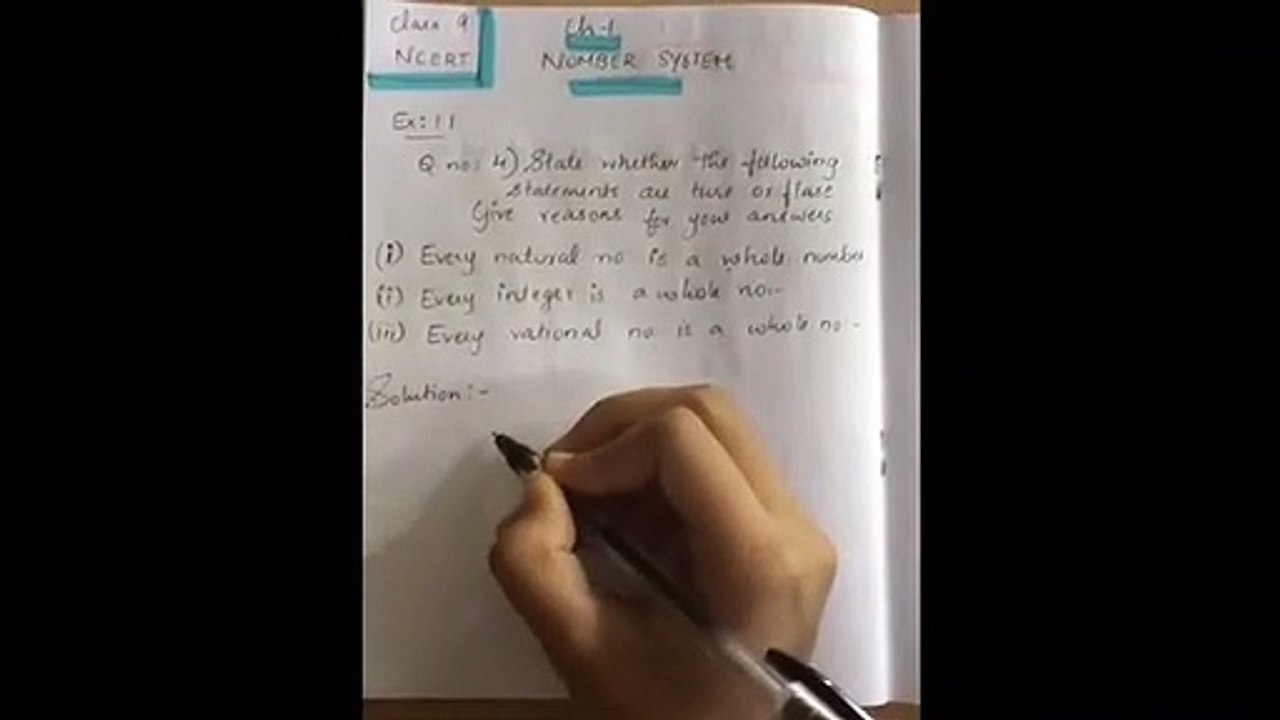 Class 9
NCERT
Ch-1
NUMBER SYSTEM
Ex: 1.1
Q no: 4) State whether the following
statements are ture or flase
Give reasons for your answers
(i) Every natural no is a whole number
(i) Every integer is a whole no:-
(iii) Every rational no is a whole no:-
Solution:-